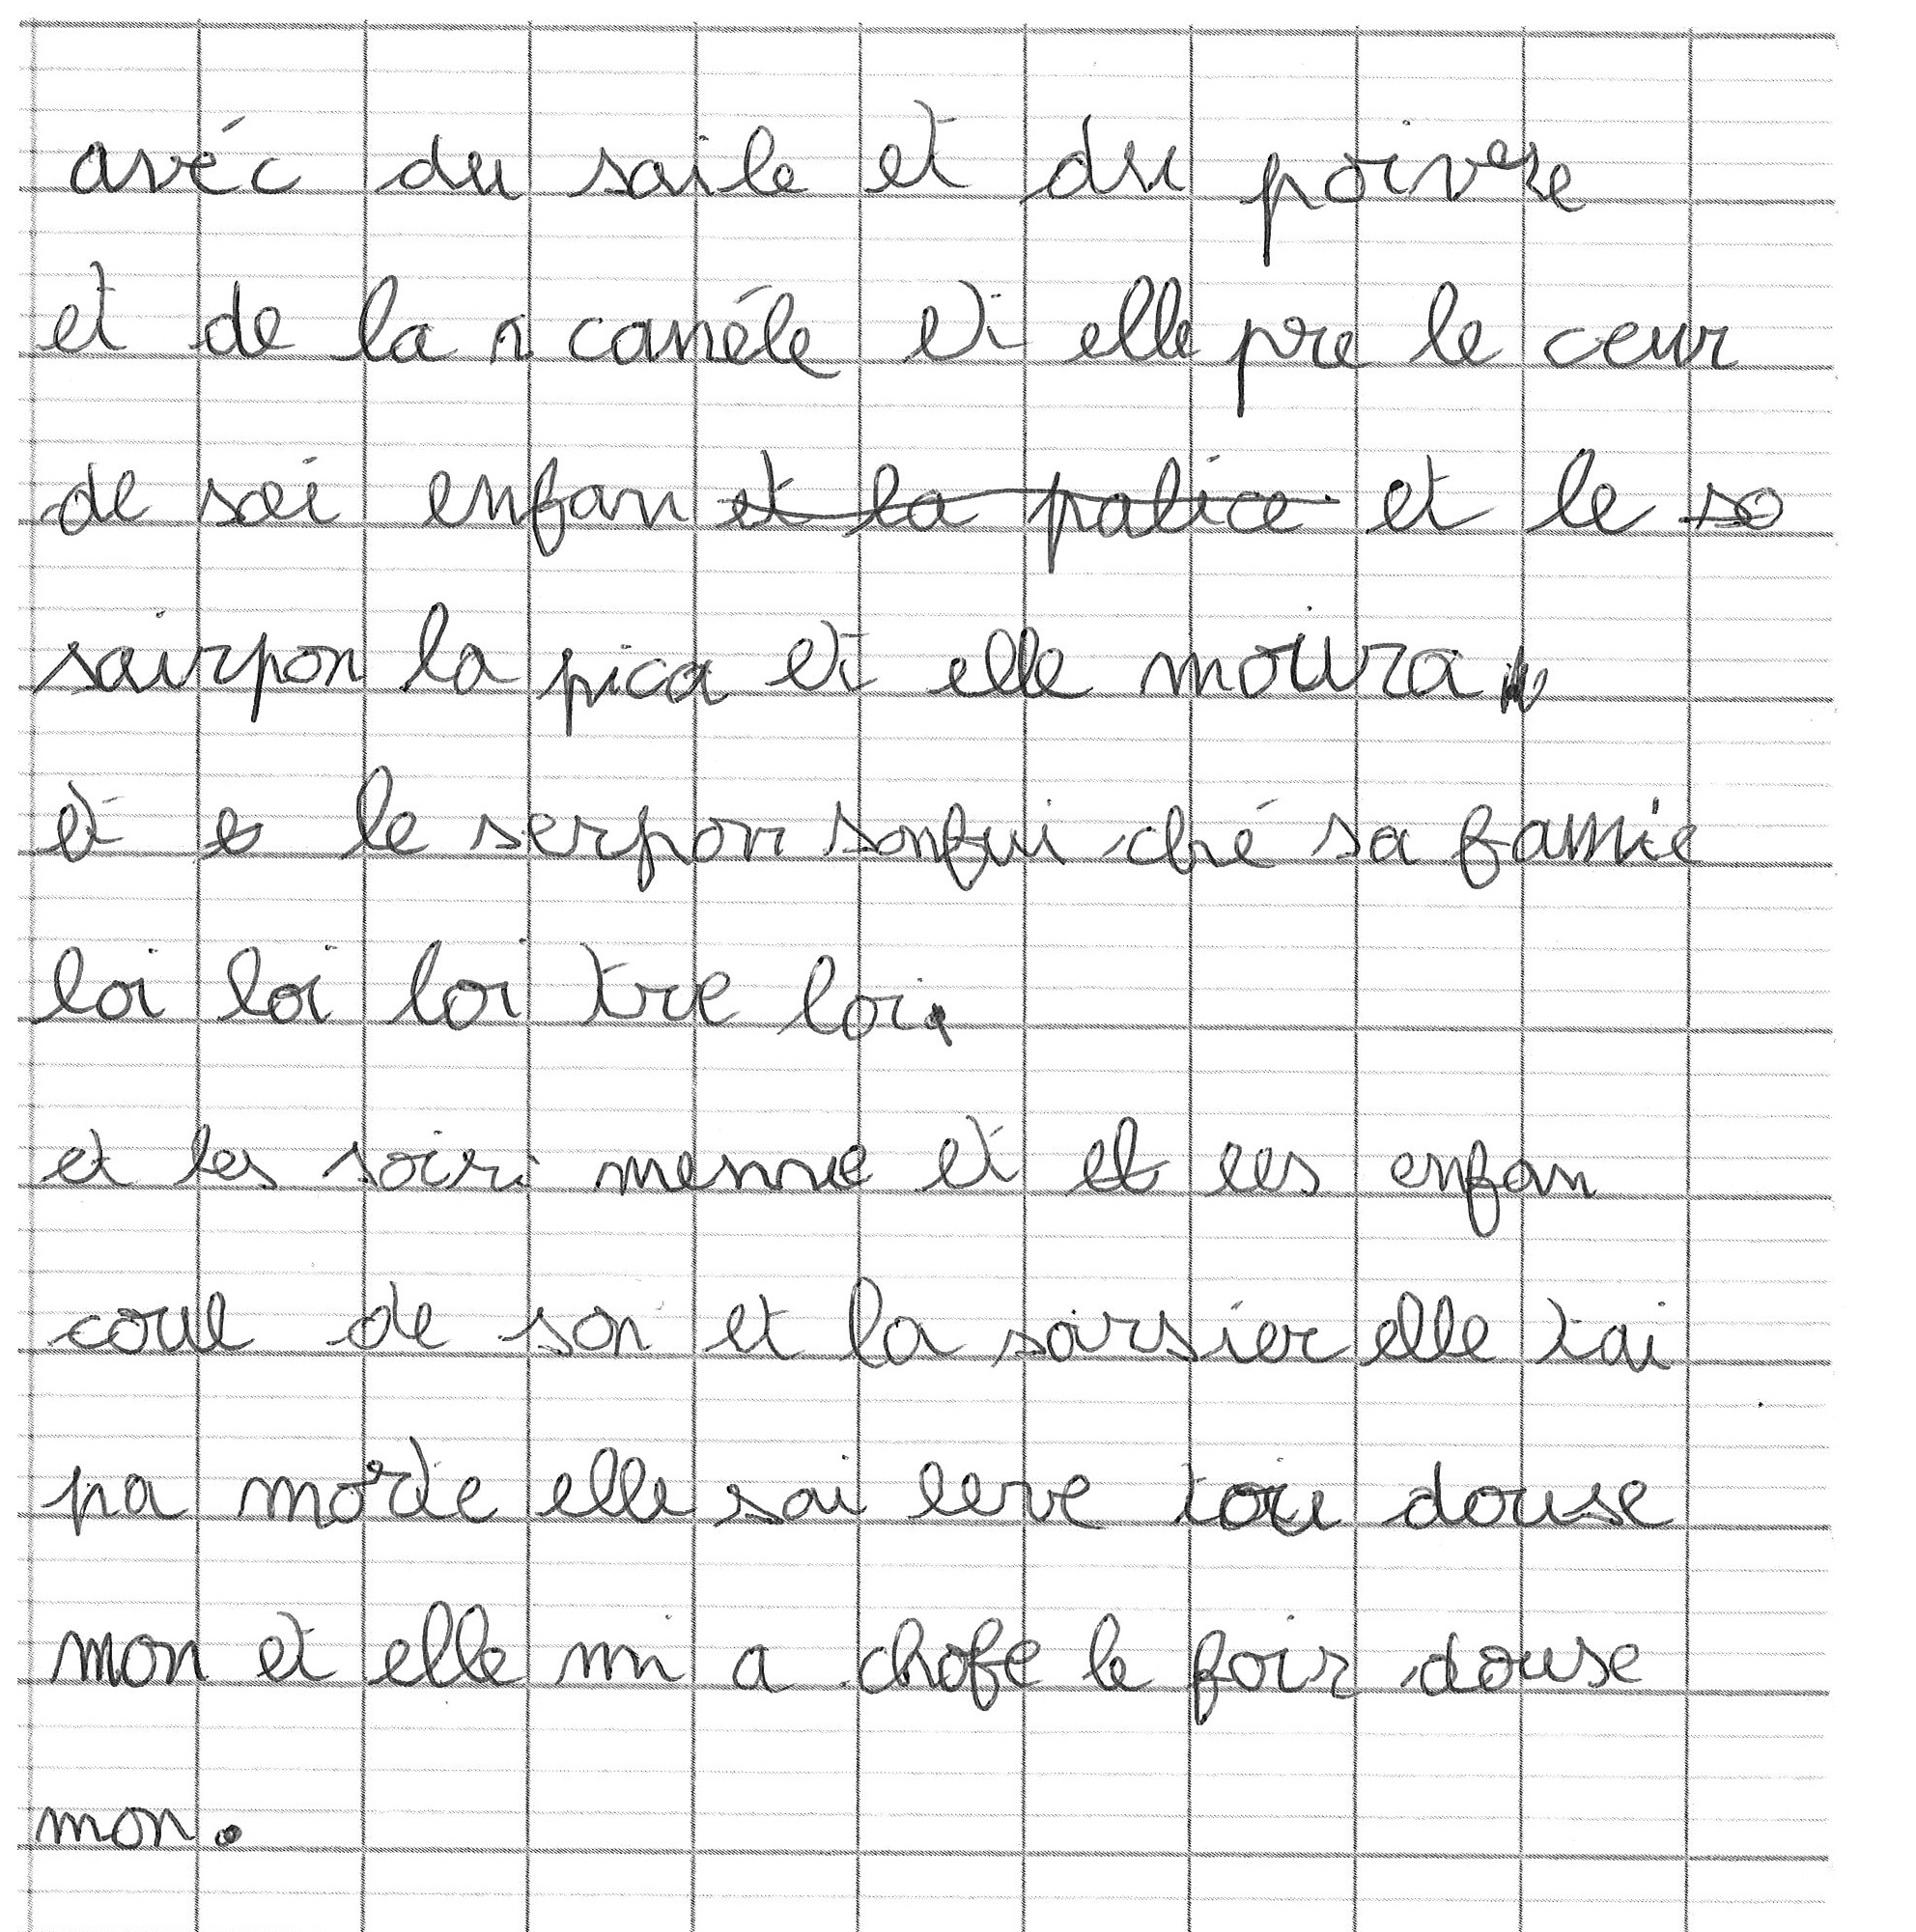 avéc du saile et du poivere
et de la canéle et elle pre le ceur
de sai enfan et la palice et le so
sairpon la pica et elle moura
et e le serpon sonfui ché sa famie
loi loi loi tre loi.
et les soir menne et et les enfan
coul de son et la sorsier elle tai
pa morte elle sai leve tou douse
mon et elle mi a chofe le foir douse
mon.